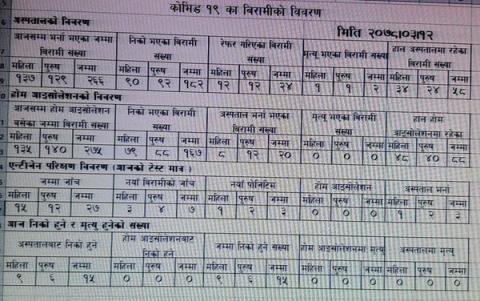 कोभिड १९ का बिरामीको विवरण
अस्पतालको विवरण
मिति २०७८।०३।१२
आजसम्म भर्ना भएका बिरामी संख्या निको भएका बिरामी संख्या रेफर गरिएका बिरामी संख्या मृत्यु भएका बिरामी संख्या हाल अस्पतालमा रहेका बिरामी संख्या
महिला पुरुष जम्मा महिला पुरुष जम्मा महिला पुरुष जम्मा महिला पुरुष जम्मा महिला पुरुष जम्मा
१३७ १२९ २६६ ९० ९२ १८२ १२ १२ २४ १ १ २ ३४ २४ ५८
होम आइसोलेशनको विवरण
आजसम्म होम आइसोलेशन बसेका जम्मा बिरामी निको भएका बिरामी संख्या अस्पताल भर्ना भएका बिरामी संख्या मृत्यु भएका बिरामी संख्या हाल होम आइसोलेशनमा रहेका
महिला पुरुष जम्मा महिला पुरुष जम्मा महिला पुरुष जम्मा महिला पुरुष जम्मा महिला पुरुष जम्मा
१३५ १४० २७५ ७९ ८८ १६७ ८ १२ २० ० ० ० ४८ ४० ८८
एन्टीजेन परिक्षण विवरण (आजको टेस्ट मात्र)
जम्मा जाँच नयाँ बिरामीको जाँच नयाँ पोजिटिभ होम आइसोलेशन अस्पताल भर्ना
महिला पुरुष जम्मा महिला पुरुष जम्मा महिला पुरुष जम्मा महिला पुरुष जम्मा महिला पुरुष जम्मा
१५ १२ २७ ३ ४ ७ १ २ ३ ० ० ० १ २ ३
आज निको हुने र मृत्यु हुनेको संख्या
अस्पतालबाट निको हुने होम आइसोलेशनबाट निको हुने जम्मा निको हुने संख्या होम आइसोलेशनमा मृत्यु अस्पतालमा मृत्यु
महिला पुरुष जम्मा महिला पुरुष जम्मा महिला पुरुष जम्मा महिला पुरुष जम्मा महिला पुरुष जम्मा
९ ६ १५ ० ० ० ९ ६ १५ ० ० ० ० ० ०